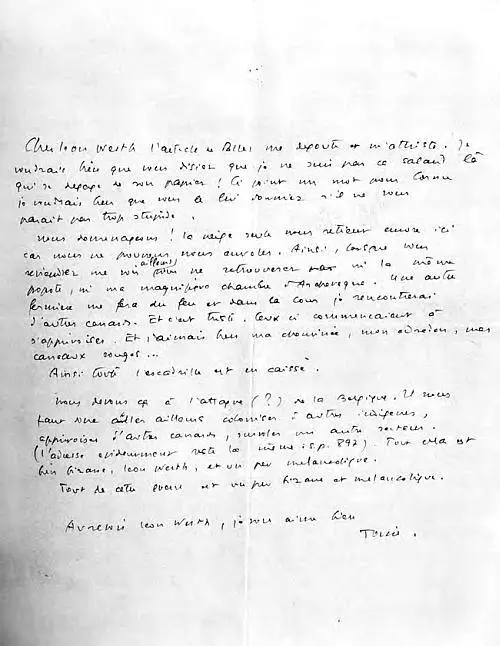 Cher Léon Werth l'article de me dégoute et m'attriste. Je
voudrais bien que vous disiez que je ne suis pas ce salaud là
qui se dégage de son papier ! Ci joint un mot pour
je voudrais bien que vous le lui donniez s'il ne vous
parait pas trop stupide.
Nous déménageons ! la neige seule nous retient encore ici
car nous ne pouvons nous envoler. Ainsi, lorsque vous
reviendrez me voir ailleurs, vous ne retrouverez ni la même
popote, ni ma magnifique chambre d' Une autre
fermière me fera du feu et dans la cour je rencontrerai
d'autres canards. Et c'est triste. Ceux ci commencaient à
s'apprivoiser. Et j'aimais bien ma cheminée, mon edredon, mes
carreaux rouges...
Ainsi toute l'escadrille est en caisse.
Nous devons ça à l'attaque (?) de la Belgique. Il nous
faut aller ailleurs coloniser d'autres indigènes,
apprivoiser d'autres canards, survoler un autre secteur.
(l'adresse evidemment reste la même : s.p. 897). Tout cela est
bien bizarre, Léon Werth, et un peu melancolique.
Tout de cette guerre est un peu bizarre et melancolique.
Au revoir Léon Werth, je vous aime bien
Tonio.